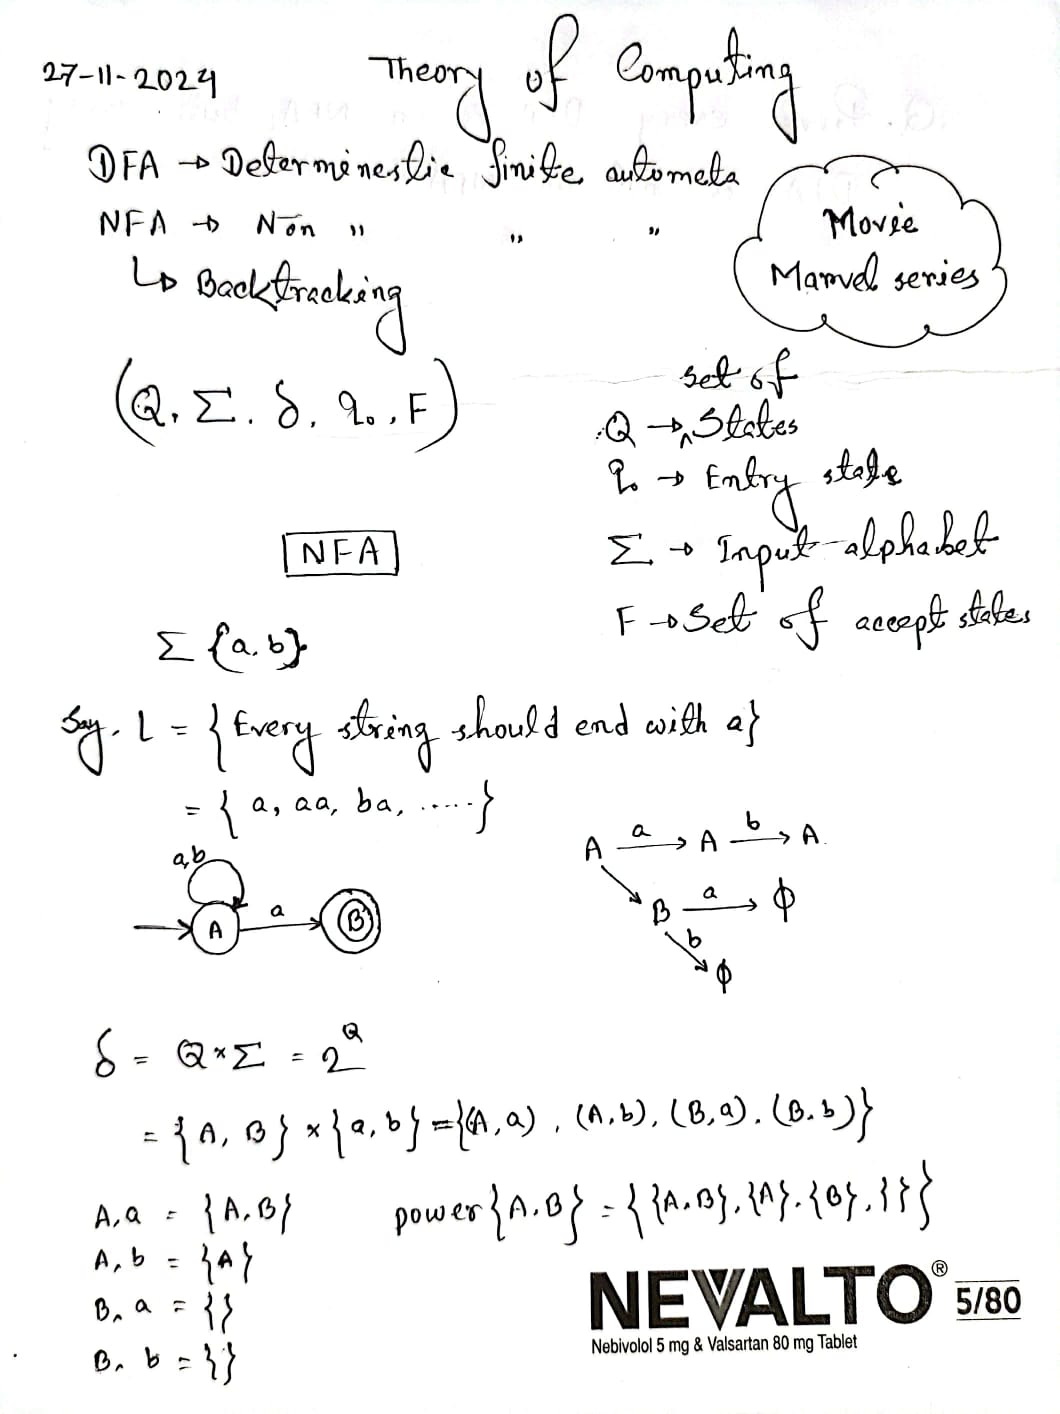 27-11-2024 Theory of Computing
DFA → Determinestic finite automata
NFA → Non " " "
↳ Backtracking
Movie
Marvel series
(Q, Σ, δ, q₀, F)
set of
Q → ^ States
q₀ → Entry state
Σ → Input alphabet
F → Set of accept states
NFA
Σ {a,b}
Say, L = { Every string should end with a}
= { a, aa, ba, ..... }
a,b
A a B
A a → A b → A.
B a → ϕ
b
ϕ
δ = Q × Σ = 2^Q
= { A, B } × { a, b } = {(A, a), (A, b), (B, a), (B, b)}
A, a = {A, B}
A, b = {A}
B, a = {}
B, b = {}
power {A, B} = { {A, B}, {A}, {B}, { } }
NEVALTO® 5/80
Nebivolol 5 mg & Valsartan 80 mg Tablet